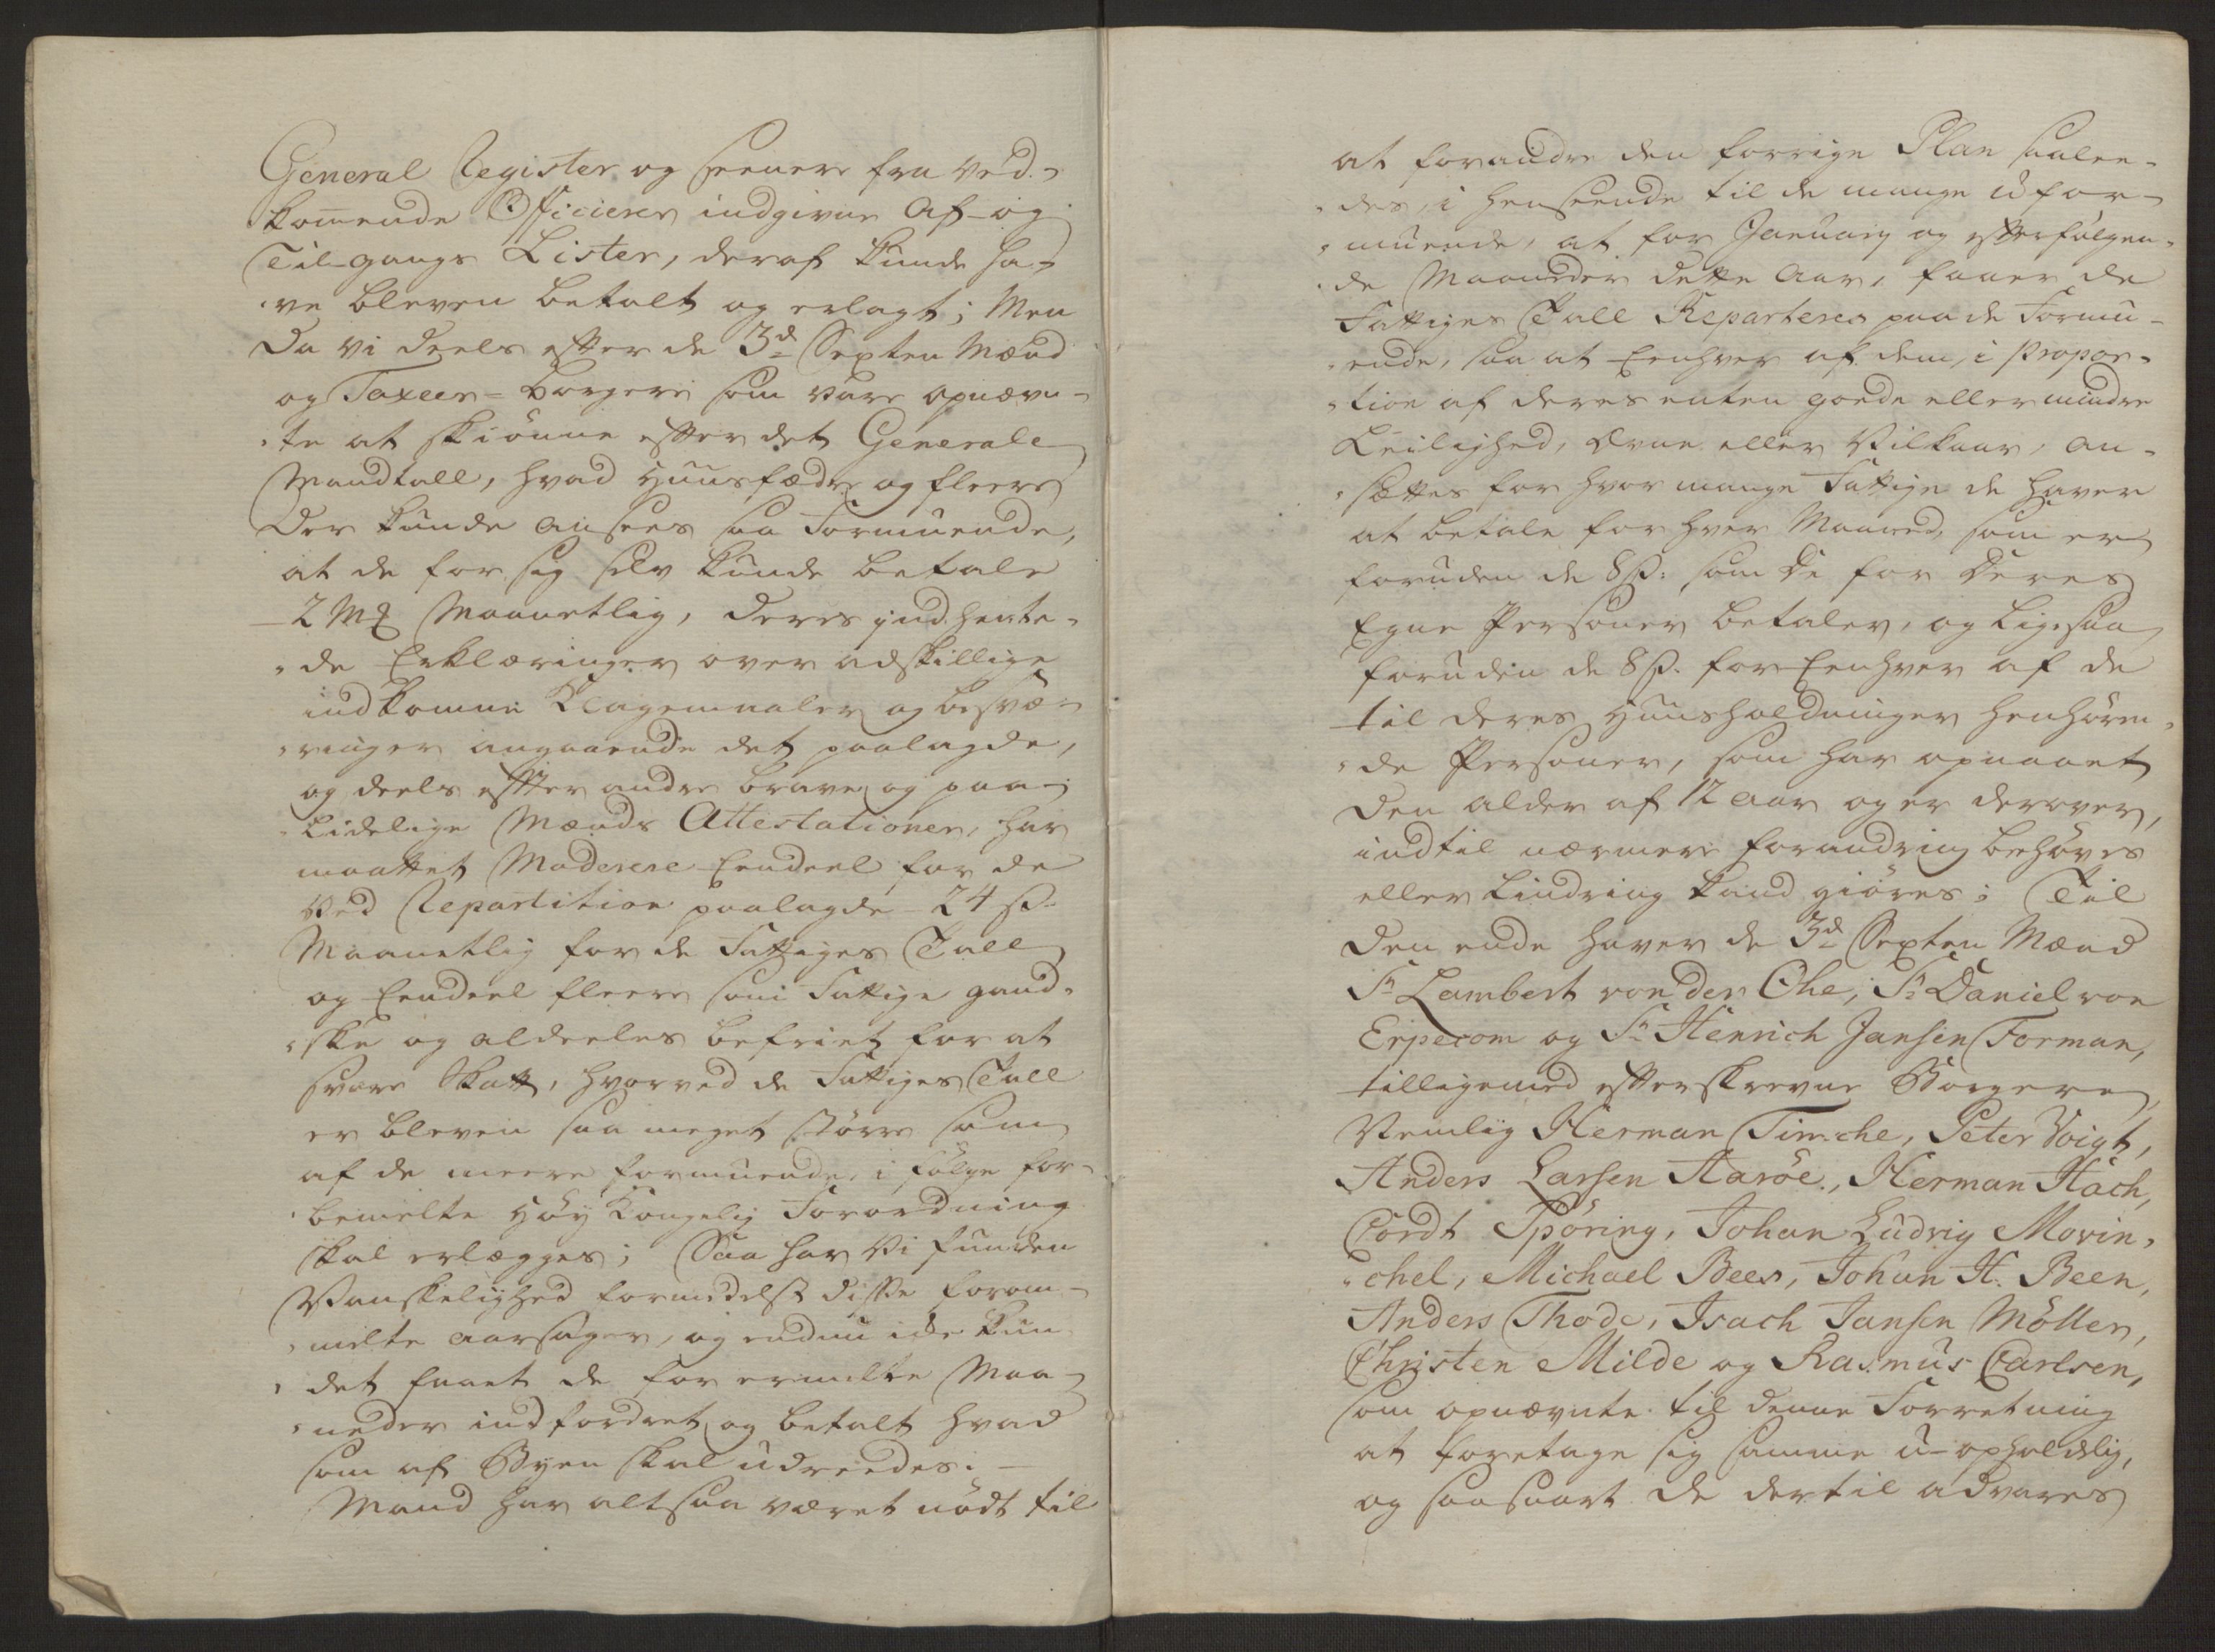 General Register og seenere fra ved-
kom̄ende Officierer indgivne Af- og
Til-gangs Lister, deraf kunde ha-
ve bleven betalt og erlagt; Men
da vi deels efter de 3de Sexten Mænd
og Taxeer-borgere som vare opnævn-
te at skiönne efter det Generale
Mandtall, hvad Huusfædre og fleere
der kunde ansees saa Formuende,
at de for sig selv kunde betale
2 Mk Maanetlig, deres indhente-
de Erklæringer over adskillige
indkomne Klagemaaler og besvæ-
ringer angaaende det paalagde,
og deels efter andre brave og paa-
lidelige Mænds Attestationer, har
maattet Moderere Eendeel for de
ved Repartition paalagde 24 s.
Maanetlig for de Fattiges Tall
og Eendeel fleere som Fattige gand-
ske og aldeeles befriet for at
svare Skatt, hvorved de Fattiges Tall
er bleven saa meget större som
af de meere formuende, i fölge for-
bemelte Höy Kongelig Forordning
skal erlægges; Saa har Vi funden
Vanskelighed formedelst disse forom-
melte aarsager, og endnu icke kun-
det faaet de for ermelte Maa-
neder indfordret og betalt hvad
som af Byen skal udreedes.
Mand har altsaa været nödt til
at forandre den forrige Plan saalee-
des, i henseende til de mange ufor-
muende, at for January og efterfölgen-
de Maaneder dette Aar, faaer de
Fattiges Tall Reparteres paa de Formu-
ende, saa at Eenhver af dem, i propor-
tion af deres enten goede eller mindre
Leilighed, Evne eller Vilkaar, an-
sættes for hvor mange Fattige de haver
at betale for hver Maaned, som er
foruden de 8 s. som De for deres
Egne Personer betaler, og ligesaa
foruden de 8 s. for Eenhver af de
til deres Huusholdninger henhören-
de Personer, som har opnaaet
den alder af 12 aar og er derover,
indtil nærmere forandring behöves
eller Lindring kand giöres; Til
den ende haver de 3de Sexten Mænd
Sr. Lambert von der Ohe, Sr. Daniel von
Erpecom og Sr. Henrich Jansen Forman,
tilligemed efterskrevne Borgere
Nemlig Herman Timche, Peter Voigt,
Anders Larsen Aaröe, Herman Hach,
Cordt Spöring, Johan Ludvig Movin-
chel, Michael Beer, Johan H. Been,
Anders Thode, Isach Jansen Möller,
Christen Milde og Rasmus Carlsen,
som opnævnte til denne Forretning
at foretage sig samme u-opholdelig,
og saasnart de dertil advares